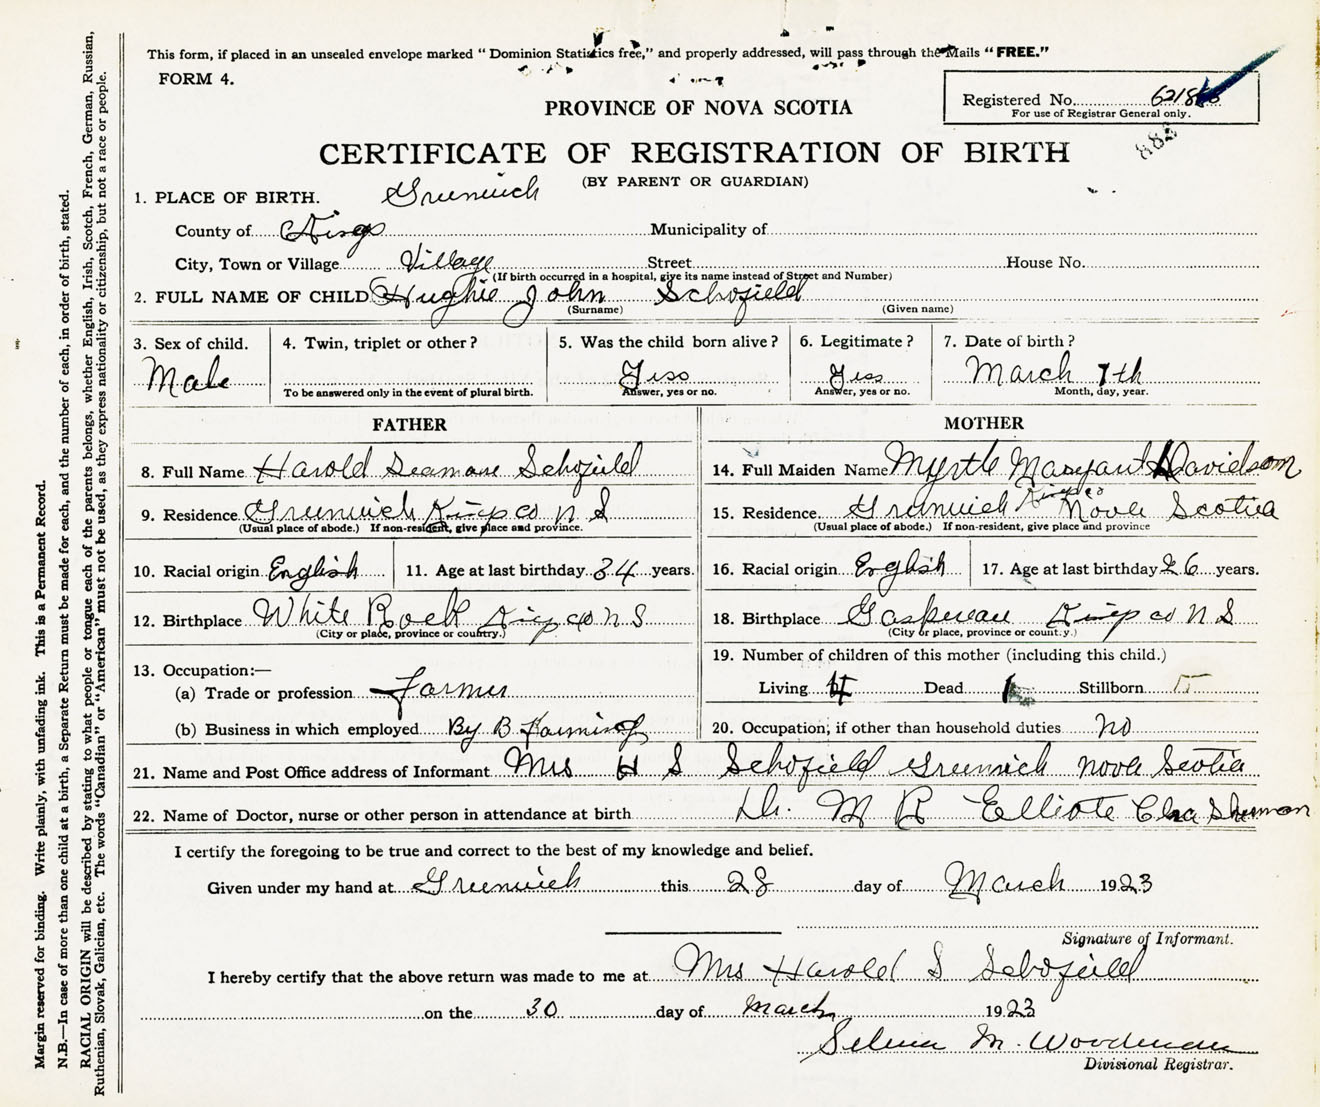 This form, if placed in an unsealed envelope marked " Dominion Statistics free," and properly addressed, will pass through the Mails "FREE."
FORM 4.
Registered No.
For use of Registrar General only.
PROVINCE OF NOVA SCOTIA
CERTIFICATE OF REGISTRATION OF BIRTH
(BY PARENT OR GUARDIAN)
1. PLACE OF BIRTH. Greenwich
County of Kings Municipality of
City, Town or Village Village Street House No.
(If birth occurred in a hospital, give its name instead of Street and Number)
2. FULL NAME OF CHILD Hughie John Schofield
(Surname) (Given name)
3. Sex of child. 4. Twin, triplet or other? 5. Was the child born alive? 6. Legitimate? 7. Date of birth?
Male Yess Yess March 7th
To be answered only in the event of plural birth. Answer, yes or no. Answer, yes or no. Month, day, year.
FATHER
8. Full Name Harold Seamore Schofield
9. Residence Greenwich Kings co N S
(Usual place of abode.) If non-resident, give place and province.
10. Racial origin English 11. Age at last birthday 34 years.
12. Birthplace White Rock Kings co N S
(City or place, province or country.)
13. Occupation:—
(a) Trade or profession Farmer
(b) Business in which employed By B Farming
MOTHER
14. Full Maiden Name Myrtle Davidson
15. Residence Greenwich Kings co Nova Scotia
(Usual place of abode.) If non-resident, give place and province
16. Racial origin English 17. Age at last birthday 26 years.
18. Birthplace Gaspereau Kings co N S
(City or place, province or count.y.)
19. Number of children of this mother (including this child.)
Living 4 Dead 1 Stillborn
20. Occupation, if other than household duties no
21. Name and Post Office address of Informant Mrs H S Schofield Greenwich Nova Scotia
22. Name of Doctor, nurse or other person in attendance at birth Dr. M R Elliote
I certify the foregoing to be true and correct to the best of my knowledge and belief.
Given under my hand at Greenwich this 28 day of March 1923
Signature of Informant.
I hereby certify that the above return was made to me at Mrs Harold S Schofield
on the 30 day of March 1923
Selena M. Woodman
Divisional Registrar.
Margin reserved for binding. Write plainly, with unfading ink. This is a Permanent Record.
N.B.—In case of more than one child at a birth, a Separate Return must be made for each, and the number of each, in order of birth, stated.
RACIAL ORIGIN will be described by stating to what people or tongue each of the parents belongs, whether English, Irish, Scotch, French, German, Russian,
Ruthenian, Slovak, Galician, etc. The words "Canadian" or "American" must not be used, as they express nationality or citizenship, but not a race or people.